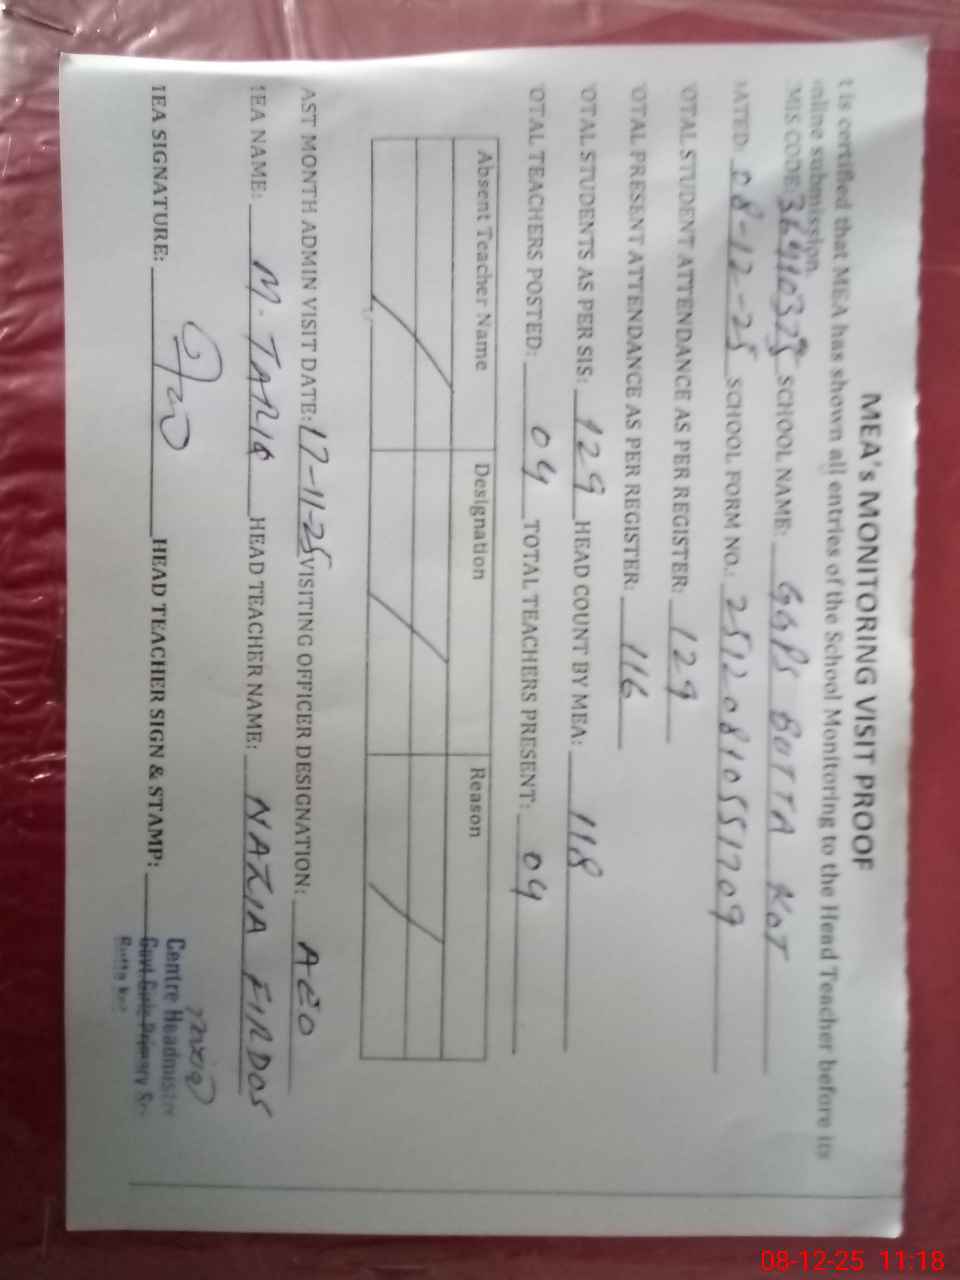 MEA's MONITORING VISIT PROOF
t is certified that MEA has shown all entries of the School Monitoring to the Head Teacher before its
nline submission.
MIS CODE: SCHOOL NAME: GGPS BUTTA KOT
ATED: 08-12-25 SCHOOL FORM NO.: 25120810551709
OTAL STUDENT ATTENDANCE AS PER REGISTER: 129
OTAL PRESENT ATTENDANCE AS PER REGISTER: 116
OTAL STUDENTS AS PER SIS: 129 HEAD COUNT BY MEA: 118
OTAL TEACHERS POSTED: 04 TOTAL TEACHERS PRESENT: 04
Absent Teacher Name Designation Reason
AST MONTH ADMIN VISIT DATE: 17-11-25 VISITING OFFICER DESIGNATION: AEO
MEA NAME: M. TARIQ HEAD TEACHER NAME: NAZIA FIRDOS
MEA SIGNATURE: HEAD TEACHER SIGN & STAMP:
Nazia
Centre Headmistr
Govt. Girls Primary Sc
Butta Kot
08-12-25 11:18